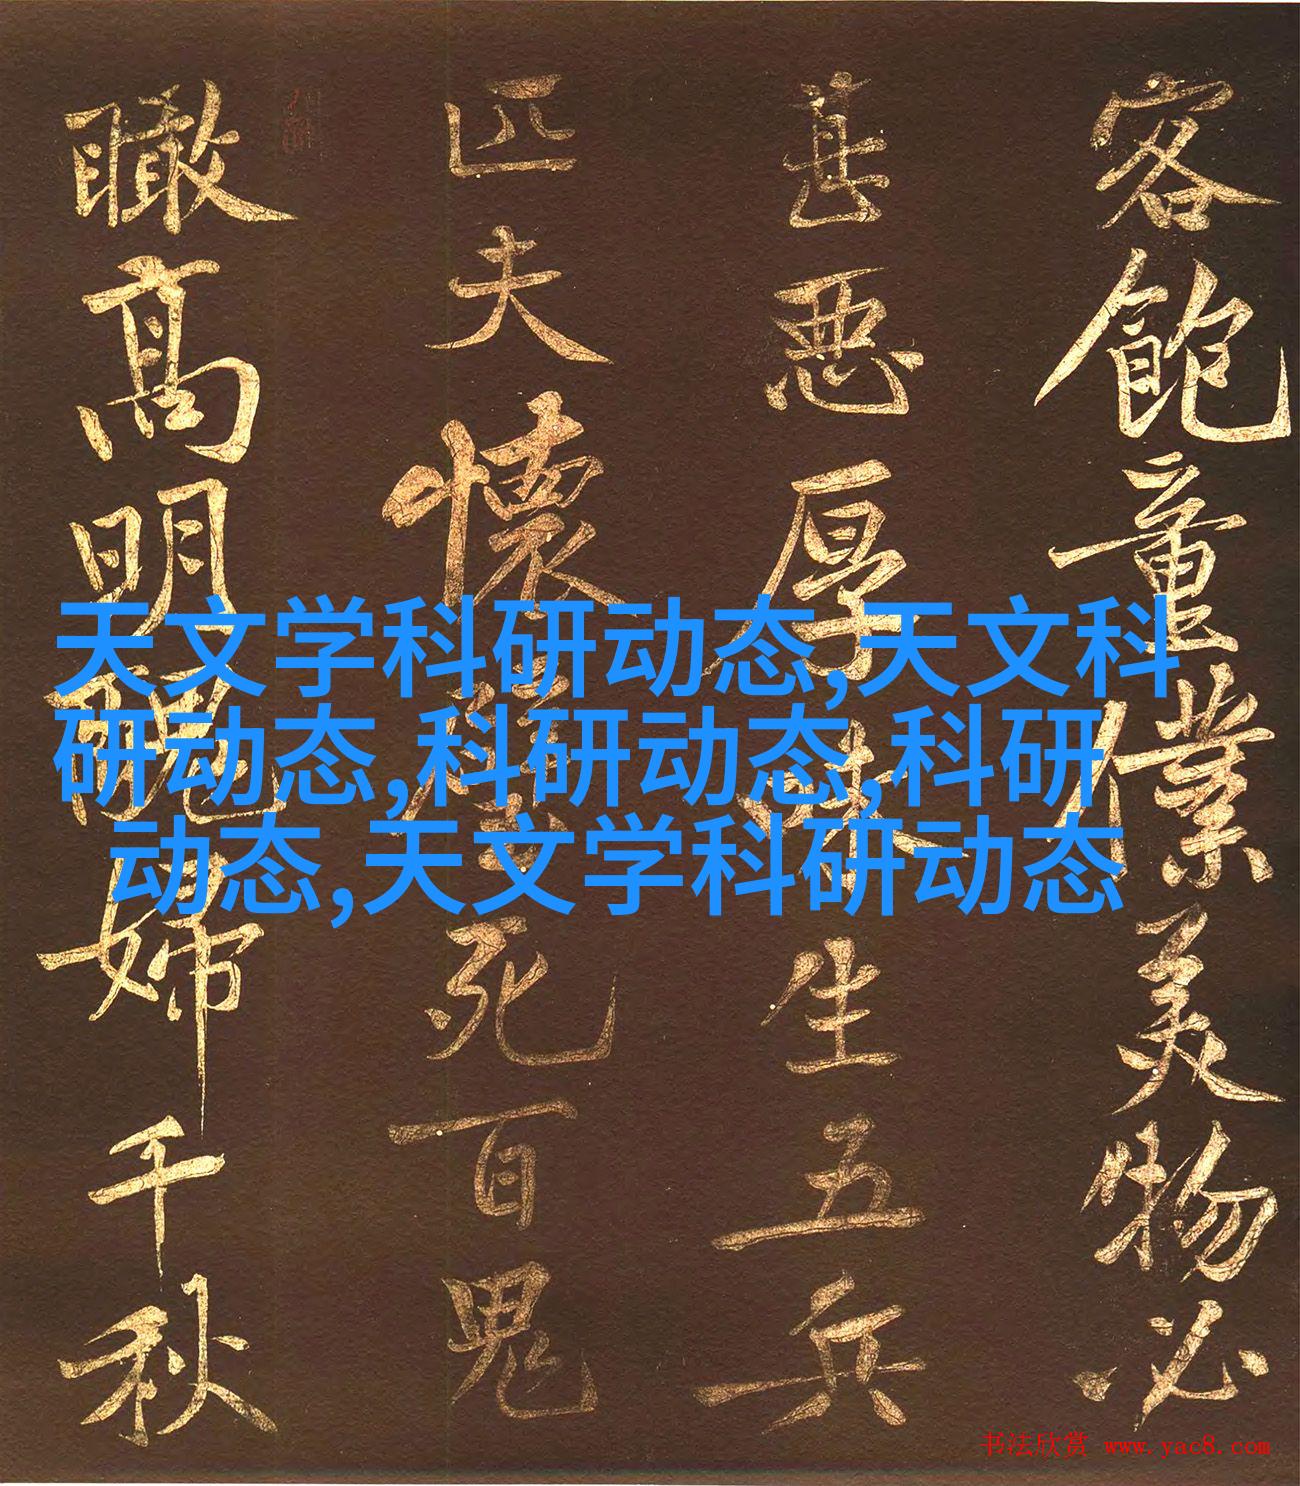 客飽童僕美物必
甚惡厚味生五兵
匹夫懷璧死百鬼
瞰高明醜婦千秋
天文学科研动态,天文科
研动态,科研动态,科研
动态,天文学科研动态
书法欣赏 www.yac8.com